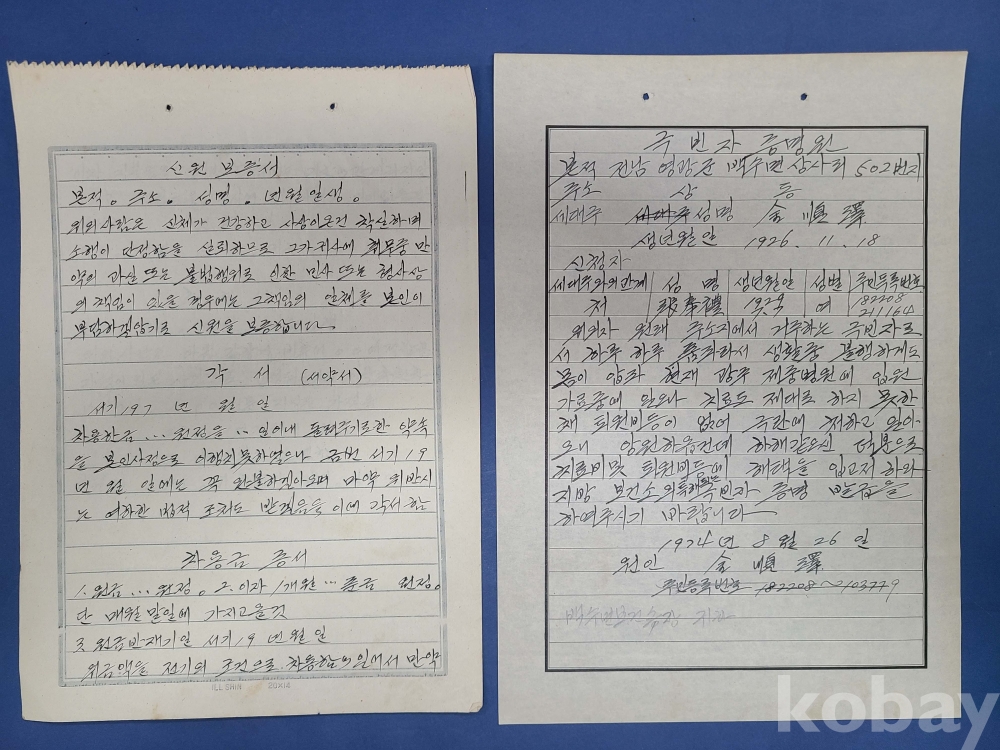 신원 보증서
본적. 주소. 성명. 년월일생.
위의사람은 신체가 건강하고 사상이온건 착실하며
소행이 단정함을 신뢰하므로 그가귀사에 취무중 만
약의 과실 또는 불법행위로 인한 민사 또는 형사상
의 책임이 있을 경우에는 그책임의 일체를 본인이
부담하겠압기로 신원을 보증합니다.
각 서 (서약서)
서기197 년 월 일
차용한금 ... 원정을 .. 일이내 돌려주기로한 약속
을 본인사정으로 이행치못하였으나 금번 서기19
년 월 일에는 꼭 완불하겠아오며 마약 위반시
는 여하한 법적 조치도 받겠음을 이에 각서함
차용금 증서
1. 원금 ... 원정. 2. 이자 1개월 ... 원정.
단 매월 말일에 가지고올것
3. 원금반재기일 서기19 년월일
위금액을 전기의 조건으로 차용함 에서 만약
ILL SHIN 20X12
극빈자 증명원
본적 전남 영광군 백수면 상사리 502번지
주소 상 동
세대주 세대주 성명 金 順 澤
생년월일 1926. 11. 18
신청자
세대주와의관계 성 명 생년월일 성별 주민등록번호
처 1929 여 182208
211164
위의자 원래 주소지에서 거주하는 극빈자로
서 하루 하루 품파라서 생활중 불행하게도
몸이 아파 현재 광주 제중병원에 입원
가료중에 있으나 치료도 제대로 하지 못한
채 퇴원비등이 없어 극란에 처하고 있아
오니 앙원하옵건데 하해같으신 덕분으로
치료비및 퇴원비등에 혜택을 입고저 하와
지방 보건소의 극빈자 증명 발급을
하여주시기 바랍니다
1974년 8월 26일
원인 金 順 澤
주민등록번호 182208~103779
kobay